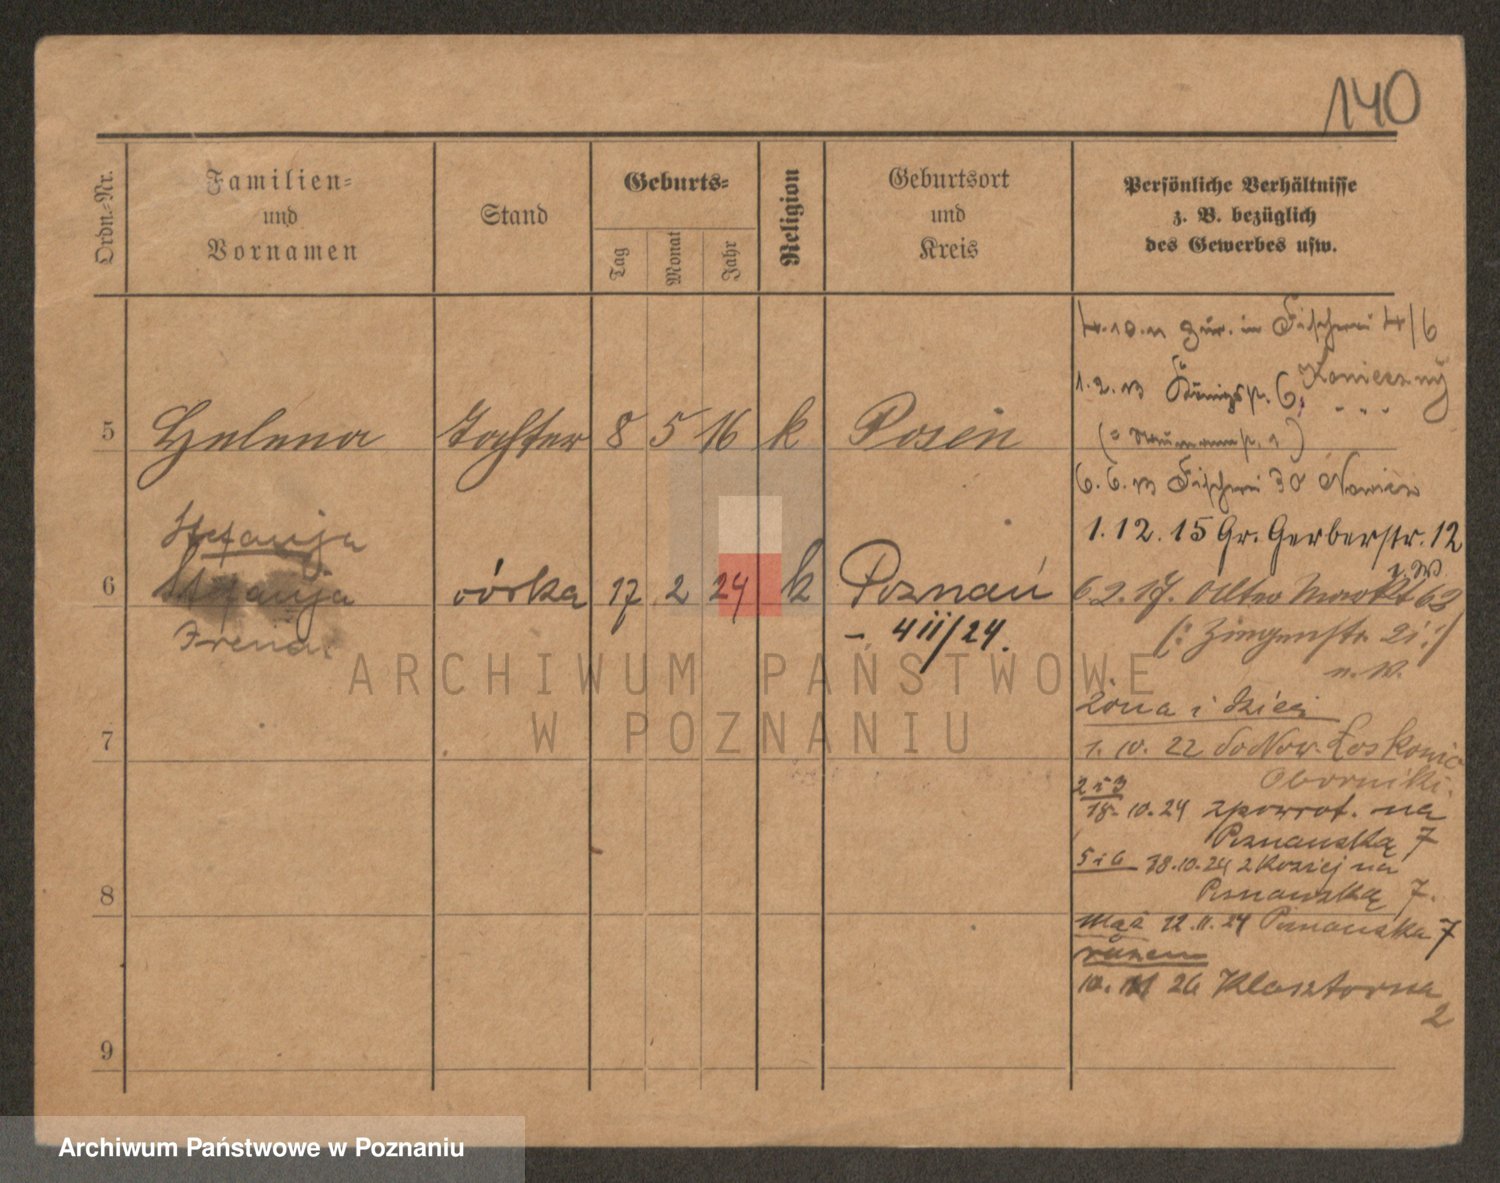 140
Ordn.-Nr.
Familien-
und
Vornamen
Stand
Geburts-
Tag
Monat
Jahr
Religion
Geburtsort
und
Kreis
Persönliche Verhältnisse
z. B. bezüglich
des Gewerbes usw.
5 Helena Tochter 8 5 16 k Posen
Stefanja
6 córka 17 2 24 k Poznań
Irena
- 4 II/24.
7
8
9
4.10.11 zur. in Fischerei 4/6
1.2.13 Königspl. 6, Konieczny
(= Naumannstr. 1)
6.6.13 Fischerei 30
1.12.15 Gr. Gerberstr. 12
n. W.
6.2.17. Alter Markt 63
(: Ziegenstr. 21 :)
n. W.
żona i dzieci
1. 10. 22 Łoskoniec
Oborniki.
2 i 3
18. 10. 24 zpowrot. na
Poznańską 7
5 i 6 18.10.24 z Koziej na
Poznańską 7.
mąż 12.11.24 Poznańska 7
razem
10. 11 26 Klasztorna
2
ARCHIWUM PAŃSTWOWE
W POZNANIU
Archiwum Państwowe w Poznaniu